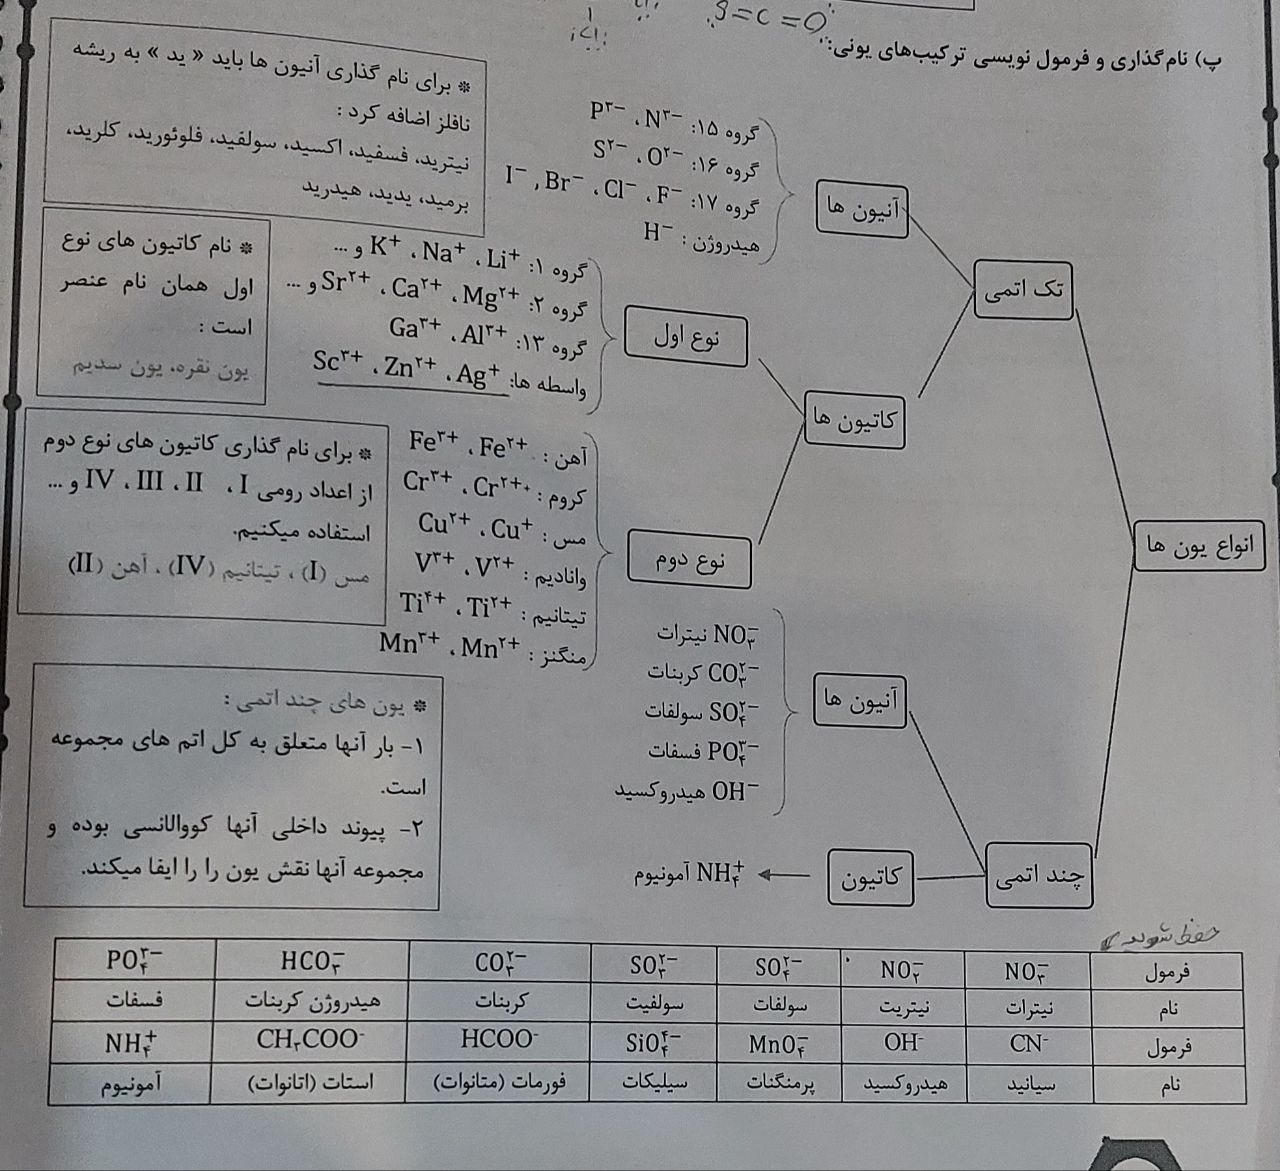 S=C=O
پ) نام‌گذاری و فرمول نویسی ترکیب‌های یونی:
* برای نام گذاری آنیون ها باید « ید » به ریشه
نافلز اضافه کرد :
نیترید، فسفید، اکسید، سولفید، فلوئورید، کلرید،
برمید، یدید، هیدرید
گروه ۱۵: N³⁻ ، P³⁻
گروه ۱۶: O²⁻ ، S²⁻
گروه ۱۷: F⁻ ، Cl⁻ ، Br⁻ , I⁻
هیدروژن : H⁻
آنیون ها
تک اتمی
* نام کاتیون های نوع
اول همان نام عنصر
است :
یون نقره، یون سدیم
گروه ۱: Li⁺ ، Na⁺ ، K⁺ و ...
گروه ۲: Mg²⁺ ، Ca²⁺ ، Sr²⁺ و ...
گروه ۱۳: Al³⁺ ، Ga³⁺
واسطه ها: Ag⁺ ، Zn²⁺ ، Sc³⁺
نوع اول
کاتیون ها
* برای نام گذاری کاتیون های نوع دوم
از اعداد رومی I ، II ، III ، IV و ...
استفاده میکنیم.
مس (I) ، تیتانیم (IV) ، آهن (II)
آهن : Fe²⁺ ، Fe³⁺
کروم : Cr²⁺ ، Cr³⁺
مس : Cu⁺ ، Cu²⁺
وانادیم : V²⁺ ، V³⁺
تیتانیم : Ti²⁺ ، Ti⁴⁺
منگنز : Mn²⁺ ، Mn³⁺
نوع دوم
انواع یون ها
* یون های چند اتمی :
۱- بار آنها متعلق به کل اتم های مجموعه
است.
۲- پیوند داخلی آنها کووالانسی بوده و
مجموعه آنها نقش یون را را ایفا میکند.
NO₃⁻ نیترات
CO₃²⁻ کربنات
SO₄²⁻ سولفات
PO₄³⁻ فسفات
OH⁻ هیدروکسید
آنیون ها
NH₄⁺ آمونیوم
کاتیون
چند اتمی
حفظ شوید
فرمول NO₃⁻ NO₂⁻ SO₄²⁻ SO₃²⁻ CO₃²⁻ HCO₃⁻ PO₄³⁻
نام نیترات نیتریت سولفات سولفیت کربنات هیدروژن کربنات فسفات
فرمول CN⁻ OH⁻ MnO₄⁻ SiO₄⁴⁻ HCOO⁻ CH₃COO⁻ NH₄⁺
نام سیانید هیدروکسید پرمنگنات سیلیکات فورمات (متانوات) استات (اتانوات) آمونیوم